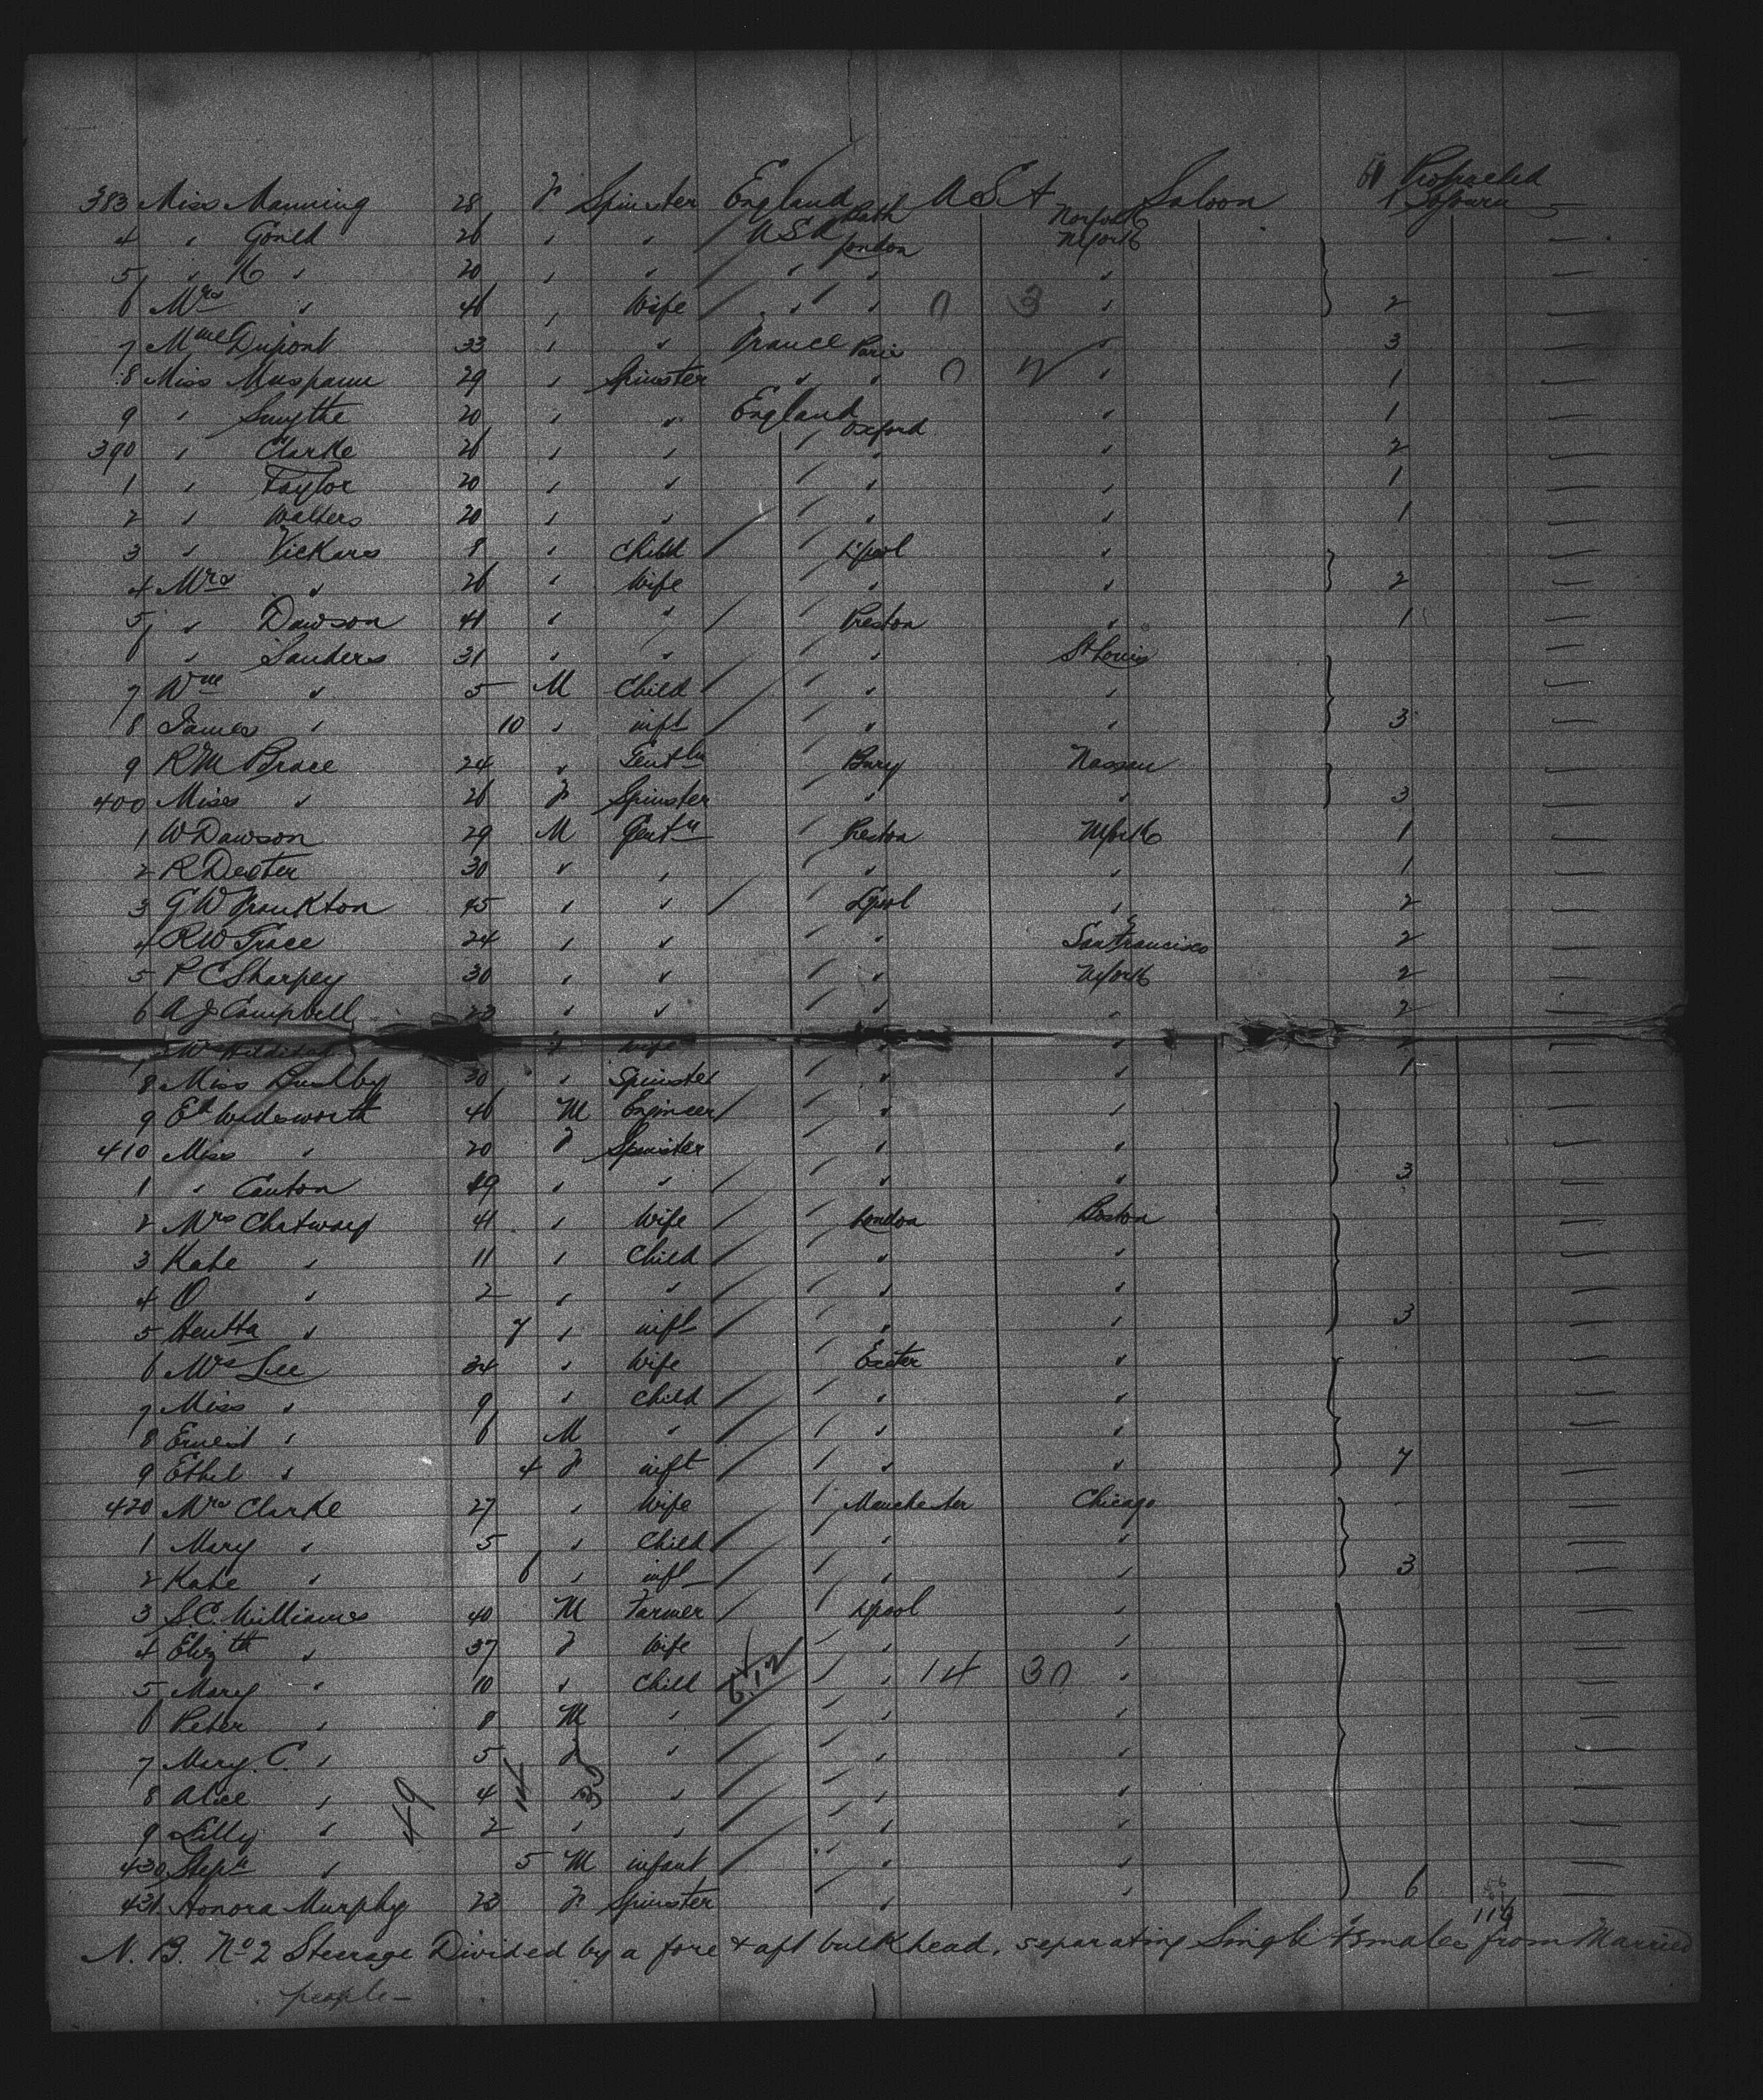 383 Miss Manning 28 F Spinster England Bath U S A Norfolk Saloon 1 Protracted Sojourn
4 " Gould 26 " " / U S A London N York —
5 " K " 20 " " / " " " —
6 Mrs " 46 " Wife / " " 0 3 " 2 —
7 Mme Dupont 33 " " France Paris " 3 —
8 Miss 29 " Spinster " " 0 2 " 1 —
9 " Smythe 20 " " England Oxford " 1 —
390 " Clarke 26 " " " " " 2 —
1 " Taylor 20 " " " " " 1 —
2 " Walters 20 " " / " " " 1 —
3 " Vickars 8 " Child / " L'pool " —
4 Mrs " 26 " Wife " " " 2 —
5 " Dawson 41 " " / " Preston " 1 —
6 " Sanders 31 " " " " St Louis —
7 Wm " 5 M Child / " " " —
8 James " 10 " inft / " " " 3 —
9 R M Brace 24 " Gentln " Bury Nassau —
400 Miss " 26 F Spinster " " " 3 —
1 W Dawson 29 M Gentn " Preston N York 1 —
2 R Dexter 30 " " " " " 1 —
3 G W Frankton 45 " " / " L'pool " 2 —
4 R W Trace 24 " " " " San Francisco 2 —
5 P C Sharpey 30 " " " " N York 2 —
6 A J Campbell 23 " " " " " 2 —
7 Mrs Hilditch F Wife " " 2 —
8 Miss Bushby 30 " Spinster " " " 1 —
9 Ed Wadsworth 46 M Engineer / " " " —
410 Miss " 20 F Spinster " " " —
1 " Canton 19 " " / " " " 3 —
2 Mrs Chatway 41 " Wife / " London Boston —
3 Kate " 11 " Child / " " " —
4 O " 2 " " / " " " —
5 Hentta " 7 " inft / " " " 3 —
6 Mrs Lee 34 " Wife " Exeter " —
7 Miss " 9 " Child / " " " —
8 Ernest " 6 M " / " " " —
9 Ethel " 4 F inft / " " " 7 —
420 Mrs Clarke 27 " Wife " Manchester Chicago —
1 Mary " 5 " Child / " " " —
2 Kate " 6 " inft / " " " 3 —
3 S. C. Williams 40 M Farmer / " L'pool " —
4 Elizth " 37 F Wife " " " —
5 Mary " 10 " Child / " " 14 30 " —
6 Peter " 8 M " / " " " —
7 Mary C. " 5 F " / " " " —
8 Alice " 4 " " / " " " —
9 Lilly " 2 " " / " " " —
430 Stepn " 5 M infant / " " " 6 —
431 Honora Murphy 23 F Spinster " " " 116 —
49
N. B. No 2 Steerage Divided by a fore & aft bulkhead, separating Single Females from Married
people—